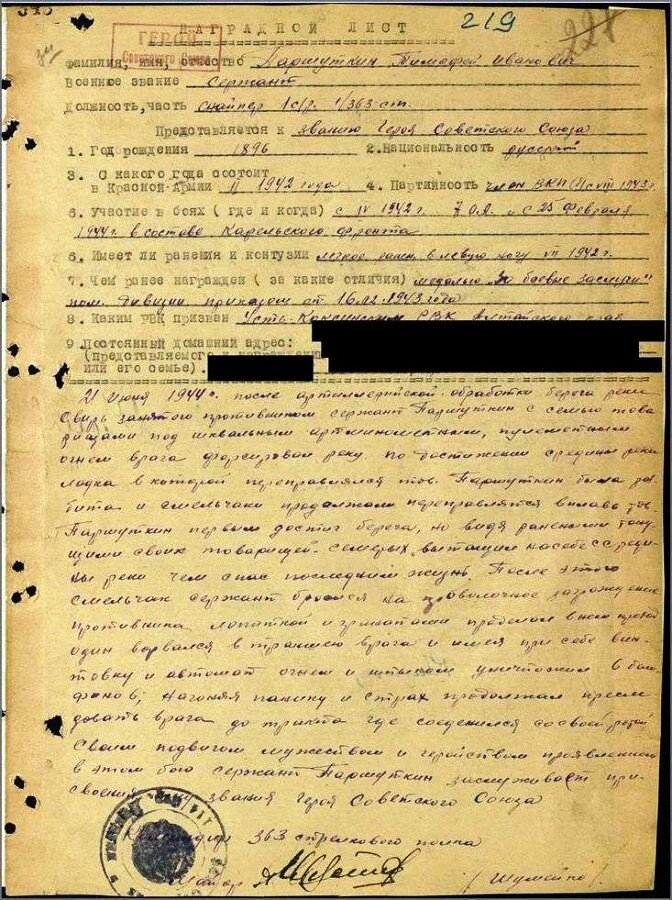 219
221
НАГРАДНОЙ ЛИСТ
ГЕРОЙ
Советского Союза
Фамилия, имя, отчество Паршуткин Тимофей Иванович
Военное звание Сержант
Должность, часть снайпер 1с/р. 1/363 сп.
Представляется к званию Героя Советского Союза
1. Год рождения 1896 2. Национальность русский
3. С какого года состоит
в Красной Армии II 1942 года 4. Партийность член ВКП(б) с VIII 1943г
6. Участие в боях ( где и когда) с IV 1942 г. 7 О.А. и с 25 февраля
1944 г. в составе Карельского фронта
6. Имеет ли ранения и контузии легкое ранен. в левую ногу VII 1942 г.
7. Чем ранее награжден ( за какие отличия) медалью "За боевые заслуги"
дивизии приказом от 16.12.1943 года
8. Каким РВК призван Усть-Коксинским РВК Алтайского края
9. Постоянный домашний адрес:
(представляемого к
или его семье).
21 июня 1944 г. после артиллерийской обработки берега реки
Свирь занятого противником сержант Паршуткин с семью това
рищами под шквальным артминометным, пулеметным
огнем врага форсировал реку. По достижении средины реки
лодка в которой переправлялся тов. Паршуткин была раз
бита и смельчаки продолжали переправлятся вплавь тов.
Паршуткин первым достиг берега, но видя ранеными тону
щими своих товарищей-семерых вытащил на себе с среди
ны реки чем спас последним жизнь. После этого
смельчак сержант бросился на проволочное заграждение
противника лопаткой и гранатами проделал в нем проход
один ворвался в траншею врага и имея при себе вин
товку и автомат огнем и штыком уничтожил
нагоняя панику и страх продолжал пресле
довать врага до тракта где соеденился со своей ротой
Своим подвигом мужеством и геройством проявленном
в этом бою сержант Паршуткин заслуживает при
своения звания Героя Советского Союза
Командир 363 стрелкового полка
Майор / Шумейко /